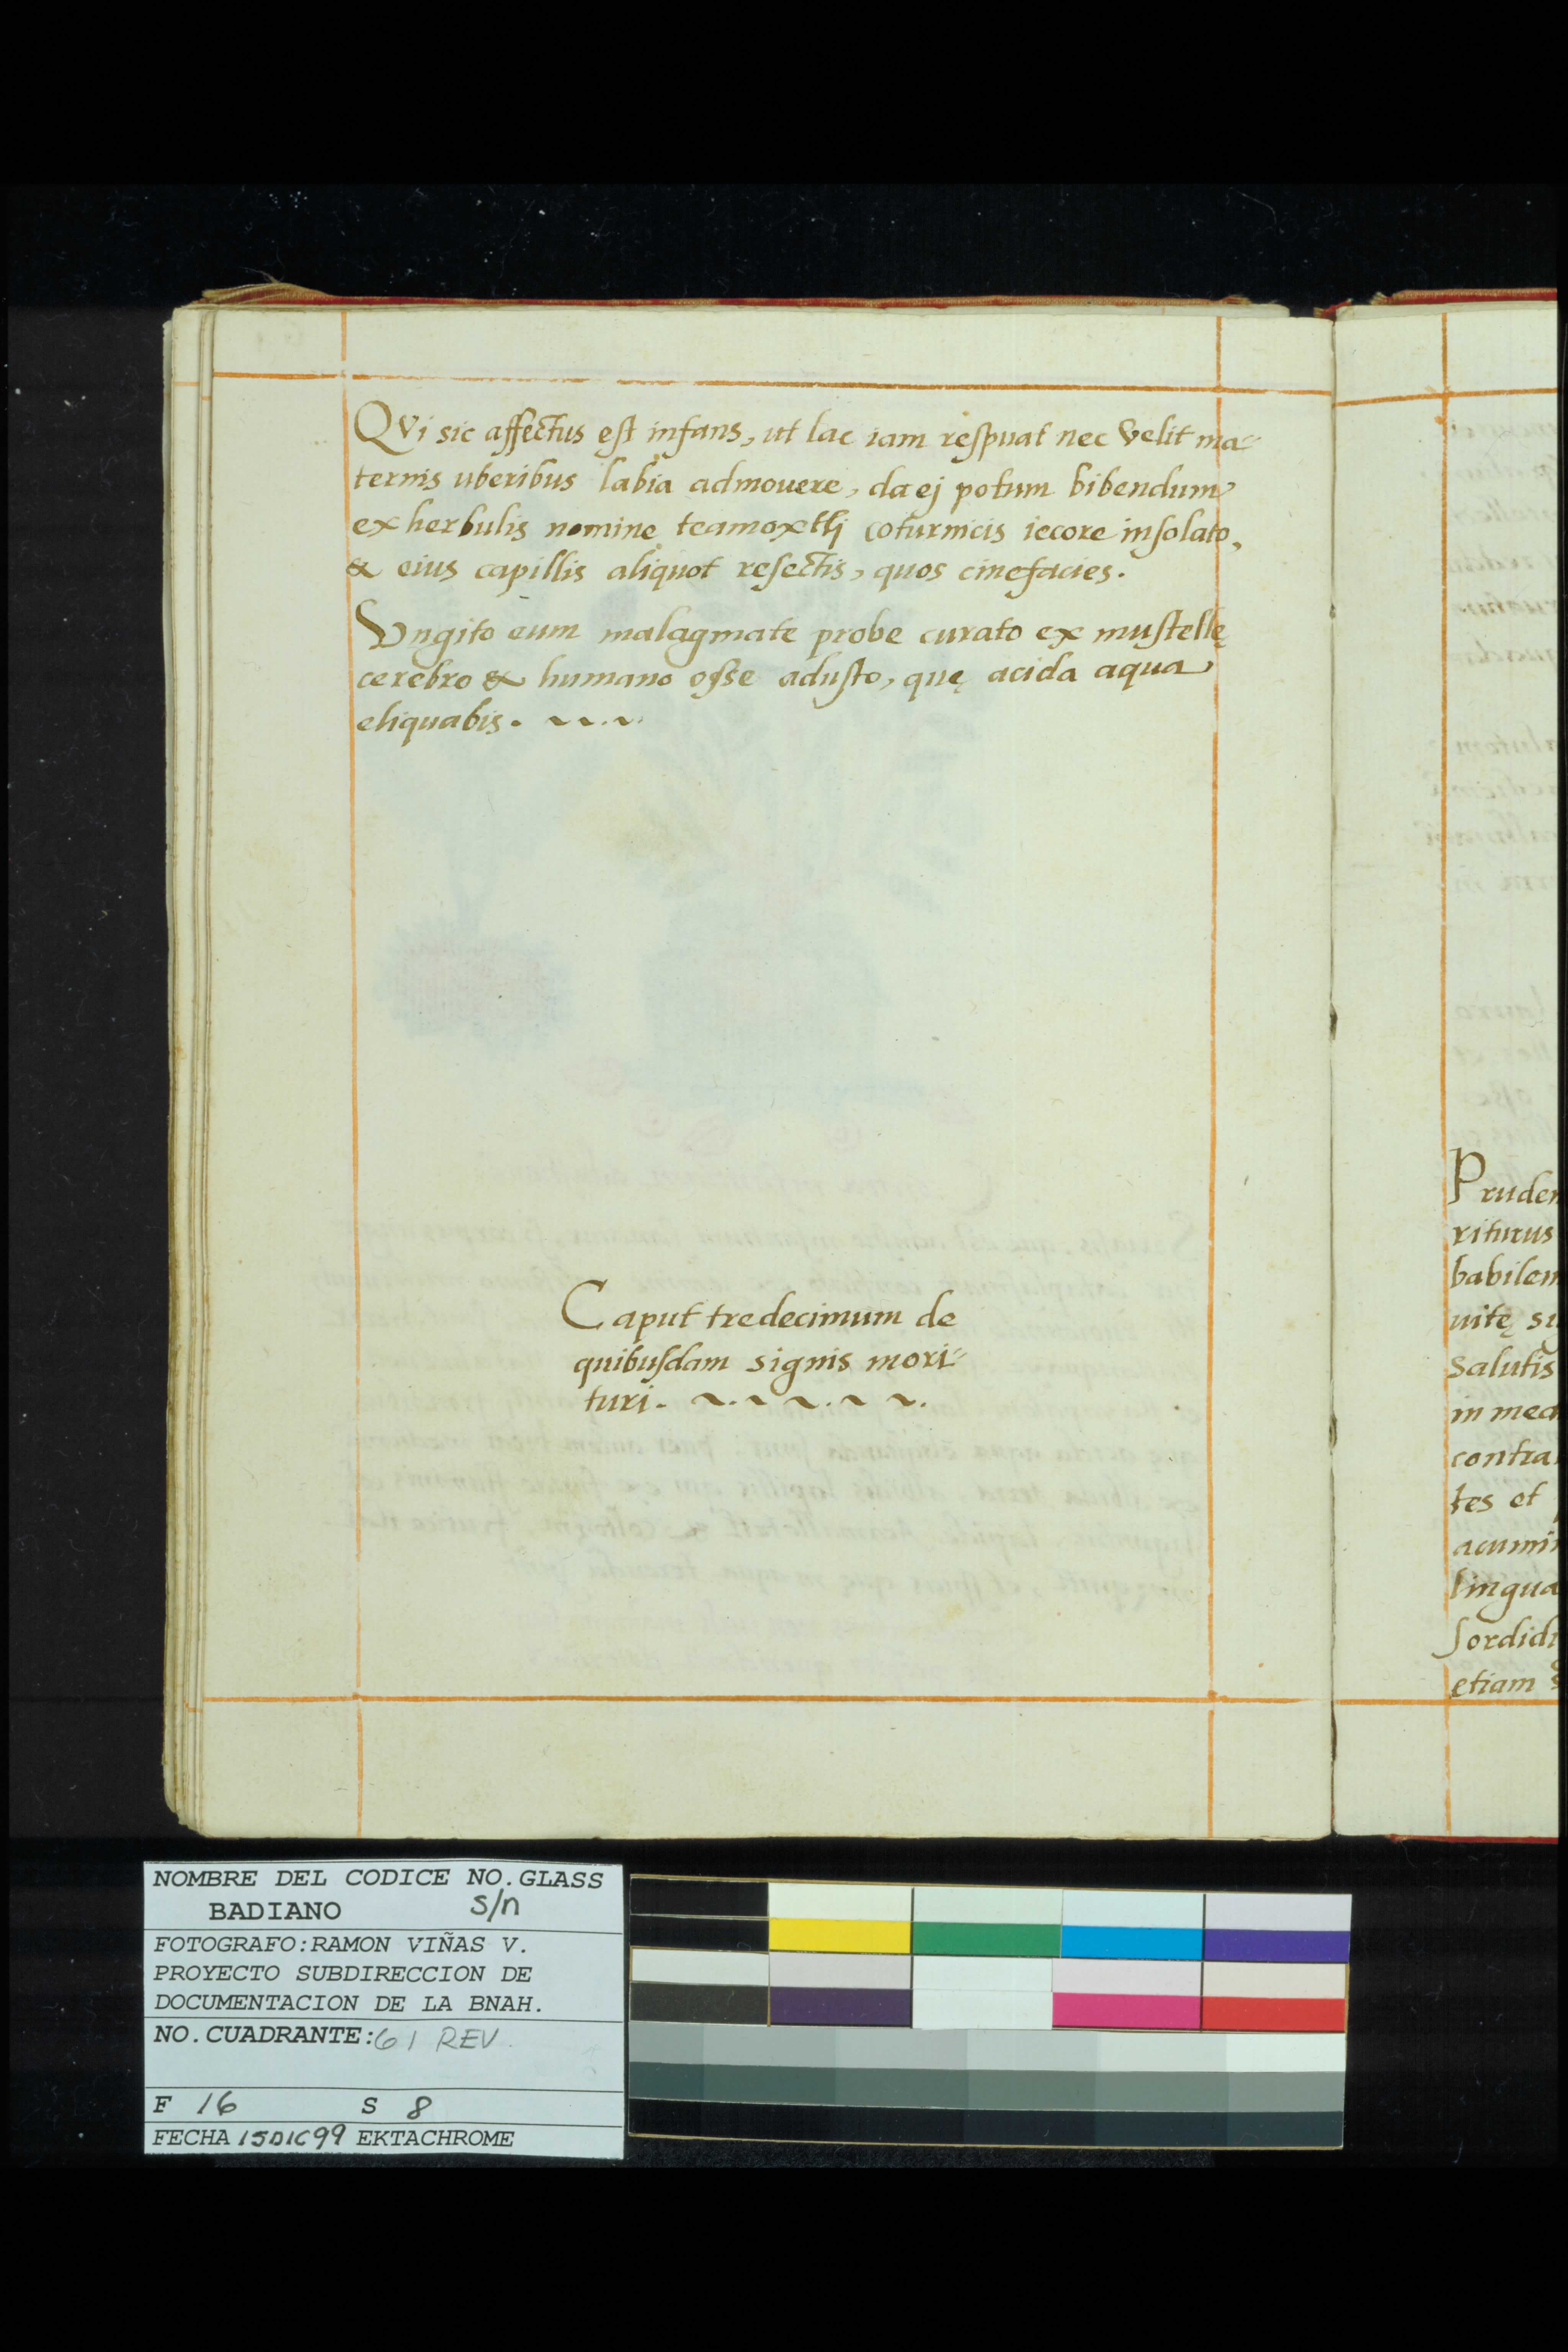 QVi sic affectus est infans, ut lac iam respuat nec velit ma=
ternis uberibus labia admouere, da ej potum bibendum
ex herbulis nomine teamoxtlj coturnicis iecore insolato,
& eius capillis aliquot resectis, quos cinefacies.
Vngito eum malagmate probe curato ex mustellę
cerebro & humano osse adusto, quę acida aqua
eliquabis.
Caput tredecimum de
quibusdam signis mori=
turi.
Pruden
riturus
babilem
uitę su
Salutis
in med
contra
tes et
acumi
lingua
sordid
etiam
NOMBRE DEL CODICE NO. GLASS
BADIANO s/n
FOTOGRAFO: RAMON VIÑAS V.
PROYECTO SUBDIRECCION DE
DOCUMENTACION DE LA BNAH.
NO. CUADRANTE: 61 REV.
F 16 S 8
FECHA 15DIC99 EKTACHROME